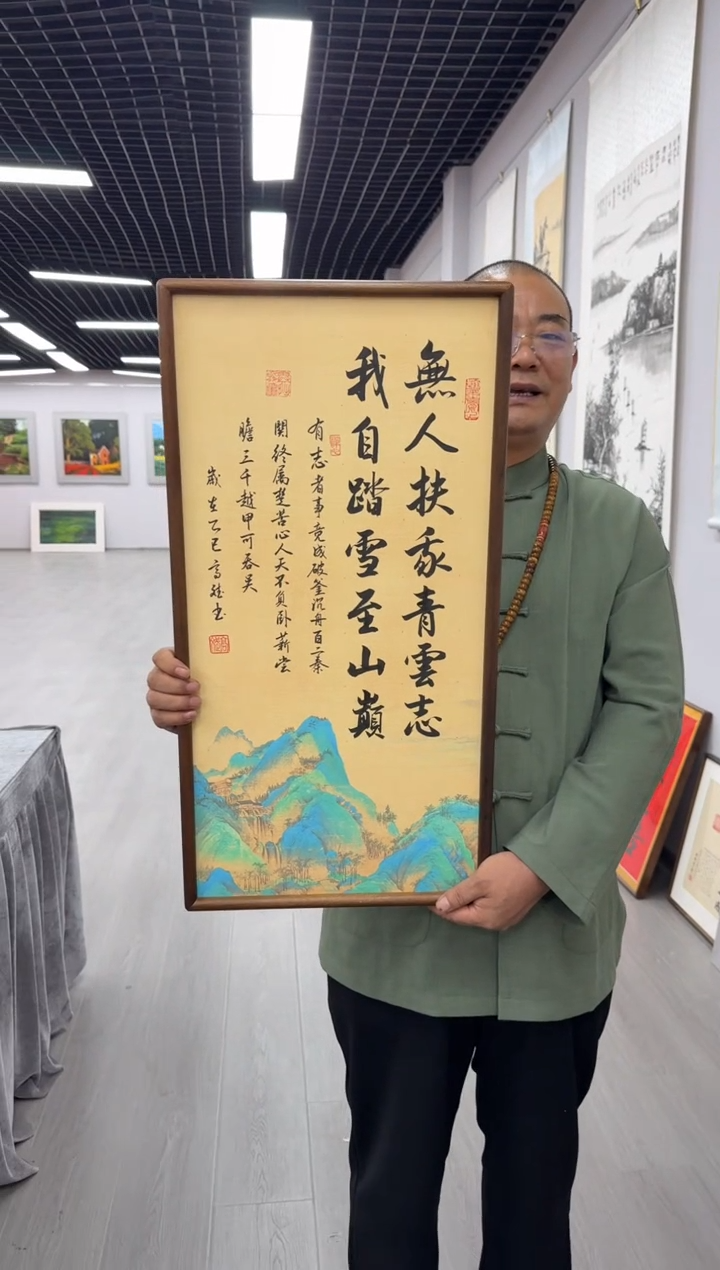 無人扶我青雲志
我自踏雪至山巔
有志者事竟成破釜沉舟百二秦
関終属楚苦心人天不負卧薪尝
膽三千越甲可吞吴
嵗在乙巳